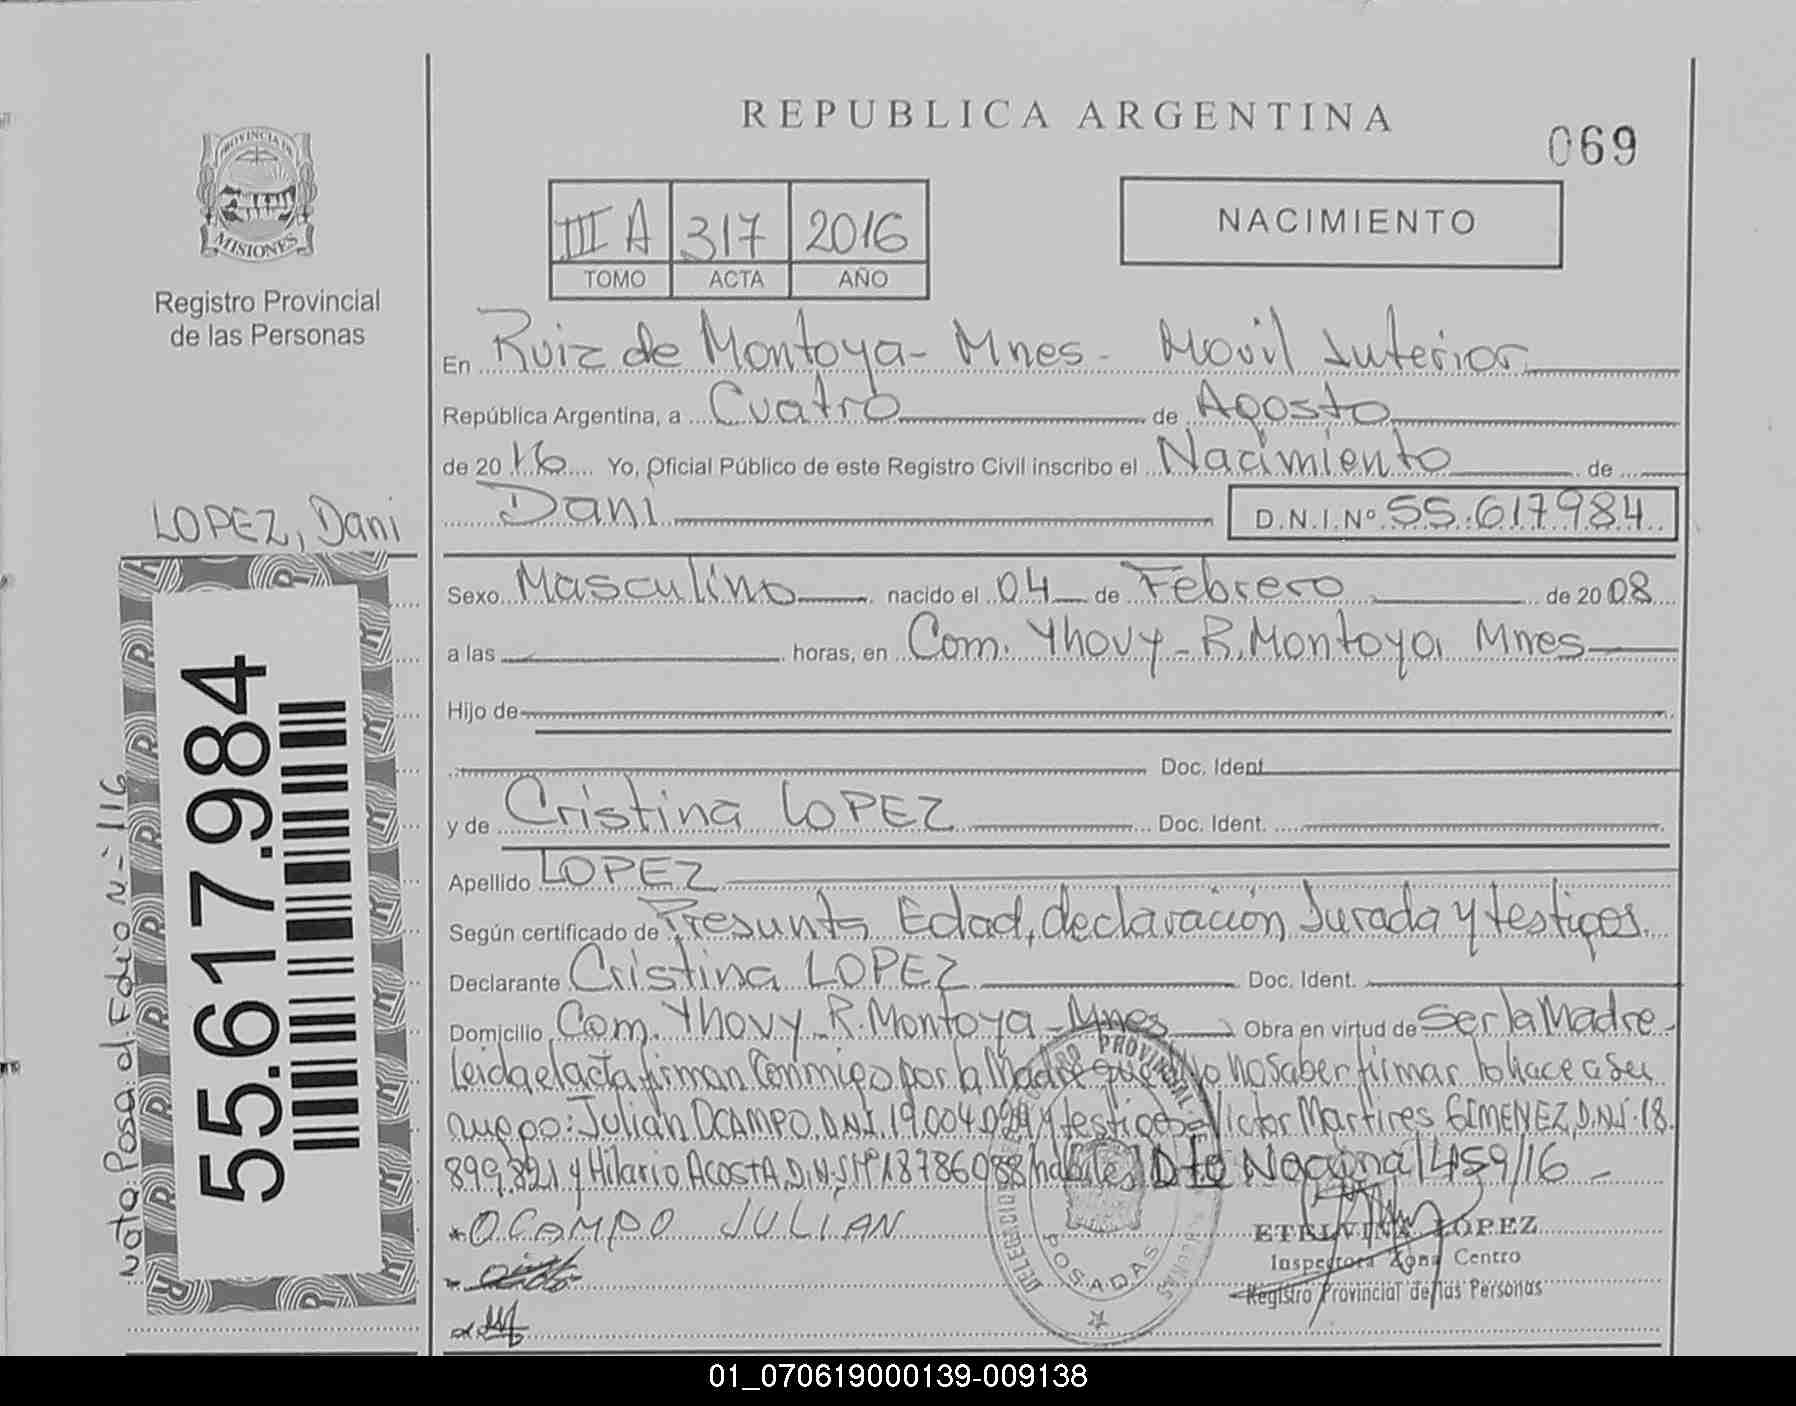 REPUBLICA ARGENTINA
069
PROVINCIA DE
MISIONES
Registro Provincial
de las Personas
III A 317 2016
TOMO ACTA AÑO
NACIMIENTO
En Ruiz de Montoya - Mnes - Movil Interior
República Argentina, a Cuatro de Agosto
de 2016 Yo, Oficial Público de este Registro Civil inscribo el Nacimiento de
Dani D.N.I.Nº 55.617.984
LOPEZ, Dani
Sexo Masculino nacido el 04 de Febrero de 2008
a las horas, en Com. Yhovy - R. Montoya Mnes
Hijo de
Doc. Ident.
y de Cristina LOPEZ Doc. Ident.
Apellido LOPEZ
Según certificado de Presunta Edad, declaración Jurada y testigos
Declarante Cristina LOPEZ Doc. Ident.
Domicilio Com. Yhovy - R. Montoya - Mnes Obra en virtud de Ser la Madre -
Leida el acta firman Conmigo por la Madre que no saber firmar lo hace a su
ruego: Julian OCAMPO D.N.I. 19.004.029 y testigos Victor Martires GIMENEZ, D.N.I. 18.
899.821 y Hilario ACOSTA D.N.I Nº 18786088 habiles Dto Nacional 459/16 -
* OCAMPO JULIAN
ETELVINA LOPEZ
Inspectora Zona Centro
Registro Provincial de las Personas
PROVINCIAL
POSADAS
55.617.984
Nota: Pasa al Folio Nº 116
01_070619000139-009138